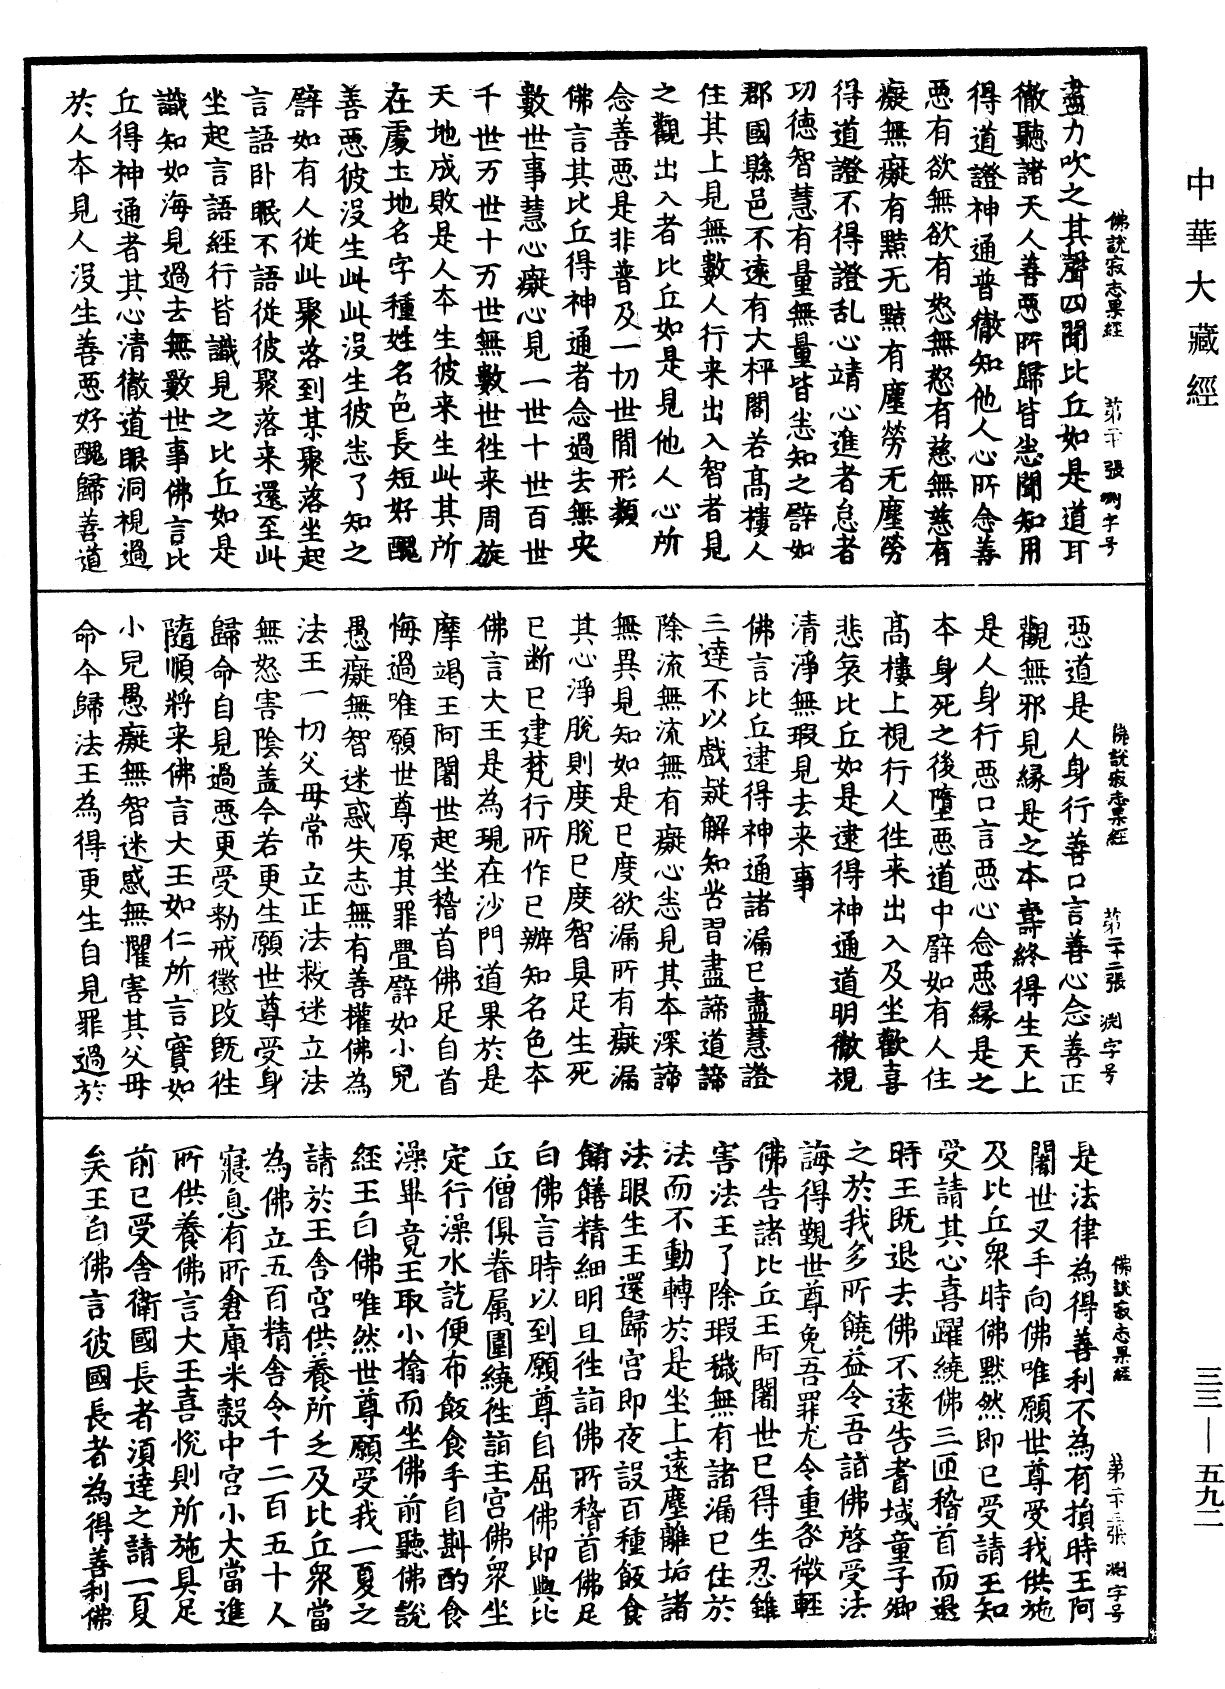 中華大藏經
三三—五九二
佛說寂志果經 第二十張 淵字号
盡力吹之其聲四聞比丘如是道耳
徹聽諸天人善惡所歸皆悉聞知用
得道證神通普徹知他人心所念善
惡有欲無欲有怒無怒有慈無慈有
癡無癡有黠无黠有塵勞无塵勞
得道證不得證乱心靖心進者怠者
功德智慧有量無量皆悉知之譬如
郡國縣邑不遠有大枰閣若高樓人
住其上見無數人行来出入智者見
之觀出入者比丘如是見他人心所
念善惡是非普及一切世間形類
佛言其比丘得神通者念過去無央
數世事慧心癡心見一世十世百世
千世万世十万世無數世徃来周旋
天地成敗是人本生彼来生此其所
在處土地名字種姓名色長短好醜
善惡彼沒生此此沒生彼悉了知之
譬如有人從此聚落到某聚落坐起
言語卧眠不語從彼聚落来還至此
坐起言語經行皆識見之比丘如是
識知如海見過去無數世事佛言比
丘得神通者其心清徹道眼洞視過
於人本見人沒生善惡好醜歸善道
佛說寂志果經 第二十二張 淵字号
惡道是人身行善口言善心念善正
觀無邪見緣是之本壽終得生天上
是人身行惡口言惡心念惡緣是之
本身死之後墮惡道中譬如有人住
高樓上視行人徃来出入及坐歡喜
悲哀比丘如是逮得神通道明徹視
清淨無瑕見去来事
佛言比丘逮得神通諸漏已盡慧證
三達不以戲疑解知苦習盡諦道諦
除流無流無有癡心悉見其本深諦
無異見知如是已度欲漏所有癡漏
其心淨脫則度脫已度智具足生死
已斷已建梵行所作已辦知名色本
佛言大王是為現在沙門道果於是
摩竭王阿闍世起坐稽首佛足自首
悔過唯願世尊原其罪疊譬如小兒
愚癡無智迷惑失志無有善權佛為
法王一切父母常立正法救迷立法
無怒害陰蓋今若更生願世尊受身
歸命自見過惡更受勑戒懲改旣徃
隨順將来佛言大王如仁所言實如
小兒愚癡無智迷惑無懼害其父母
命今歸法王為得更生自見罪過於
佛說寂志果經 第二十三張 淵字号
是法律為得善利不為有損時王阿
闍世叉手向佛唯願世尊受我供施
及比丘衆時佛默然即已受請王知
受請其心喜躍繞佛三匝稽首而退
時王既退去佛不遠告耆域童子卿
之於我多所饒益令吾詣佛啓受法
誨得觐世尊免吾罪尤令重咎微輕
佛告諸比丘王阿闍世已得生忍雖
害法王了除瑕穢無有諸漏已住於
法而不動轉於是坐上遠塵離垢諸
法眼生王還歸宮即夜設百種飯食
餚饍精細明旦徃詣佛所稽首佛足
白佛言時以到願尊自屈佛即與比
丘僧俱眷属圍繞徃詣王宮佛衆坐
定行澡水訖便布飯食手自斟酌食
澡畢竟王取小搨而坐佛前聽佛說
經王白佛唯然世尊願受我一夏之
請於王舍宮供養所乏及比丘衆當
為佛立五百精舍令千二百五十人
寢息有所倉庫米穀中宮小大當進
所供養佛言大王喜悅則所施具足
前已受舍衛國長者須達之請一夏
矣王白佛言彼國長者為得善利佛